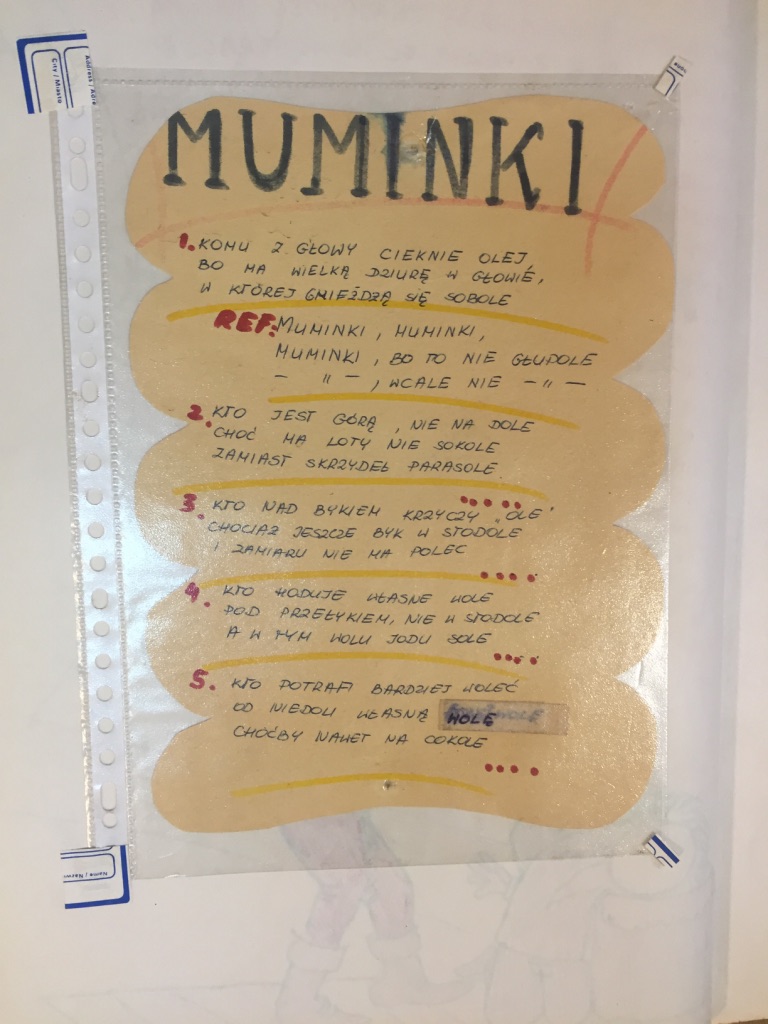 City / Miasto
Address / Adre
MUMINKI
1. KOMU Z GŁOWY CIEKNIE OLEJ,
BO MA WIELKĄ DZIURĘ W GŁOWIE,
W KTÓREJ GNIEŹDŻĄ SIĘ SOBOLE
REF: MUMINKI, MUMINKI,
MUMINKI, BO TO NIE GŁUPOLE
— " —, WCALE NIE — " —
2. KTO JEST GÓRĄ, NIE NA DOLE
CHOĆ MA LOTY NIE SOKOLE
ZAMIAST SKRZYDEŁ PARASOLE
3. KTO NAD BYKIEM KRZYCZY „OLE"
CHOCIAŻ JESZCZE BYK W STODOLE
I ZAMIARU NIE MA POLEC
4. KTO HODUJE WŁASNE WOLE
POD PRZEŁYKIEM, NIE W STODOLE
A W TYM WOLU JODU SOLE
5. KTO POTRAFI BARDZIEJ WOLEĆ
OD NIEDOLI WŁASNĄ WOLĘ
CHOĆBY NAWET NA COKOLE
Name / Nazw